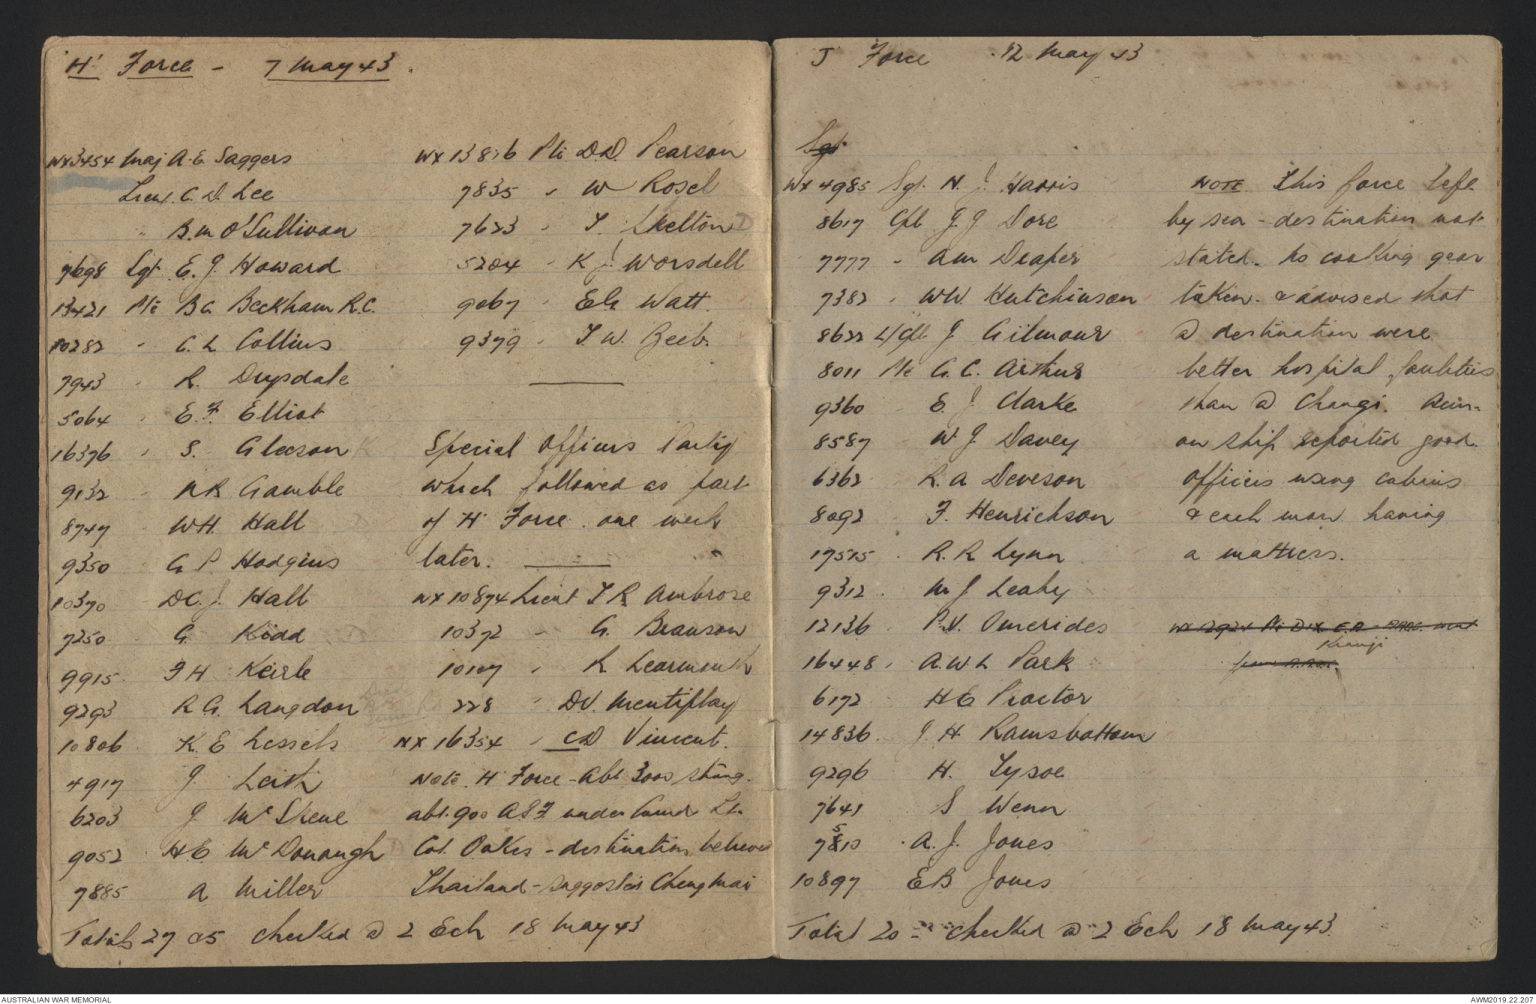 'H' Force - 7 May 43.
WX3454 Maj A. E Saggers
Lieut C. D. Lee
" B. M O'Sullivan
7698 Sgt E. J. Howard
13421 Pte B C Beckham R.C.
10282 " C. L Collins
7943 " R. Drysdale
5064 " E. F Elliot
16376 " S. Gleeson
9132 " A R Gamble
8747 WH. Hall
9350 G P Hodgins
10370 D C. J. Hall
7250 G. Kidd
9915 F H Keirle
9293 R G. Langdon
10806 K. E Lessels
4917 J Leith
6203 J McSkene
9052 H. C McDonough
7885 A Miller
WX 13826 Pte D D. Pearson
7835 " W Rosel
7623 " T. Skelton D
5204 " K J Worsdell
9067 " E G Watt.
9379 " T W. Beeb
Special Officers Party
which followed as part
of 'H' Force one week
later.
WX 10874 Lieut T R Ambrose
10372 " G. Branson
10107 " R Learmonth
228 " DV. Mentiplay
NX 16354 " C D Vincent.
Note. H Force - Abt 3000 strong.
abt. 900 A I F under Comd Lt.
Col. Oakes - destination believed
Thailand - suggested Chengmai
Totals 27 O5 checked @ 2 Ech 18 May 43
J Force 12 May 43
Sgt
WX 4985 Sgt. N. J. Harris
8617 Cpl J J Dore
7777 - A M Draper
7382 " WW Hutchinson
8622 L/Cpl J Gilmour
8011 Pte G. C. Arthur
9360 E. J. Clarke
8587 W J Davey
6362 R. A Deveson
8092 F. Henrickson
17515 R. R Lynn
9312 M J Leahy
12136 P. V. Omerides
16448 A W L Park
6172 H C Proctor
14836 J H Ramsbottom
9296 H. Tysoe
7641 S Wenn
7510 A. J. Jones
10897 E B Jones
Note This force left
by sea - destination not
stated. No cooking gear
taken & advised that
@ destination were
better hospital facilities
than @ Changi.
on ship reported good.
Officers using cabins
& each man having
a mattress.
WX 12924 Pte Dix
Kranji
Total 20 - checked @ 2 Ech 18 May 43.
AUSTRALIAN WAR MEMORIAL
AWM2019.22.207